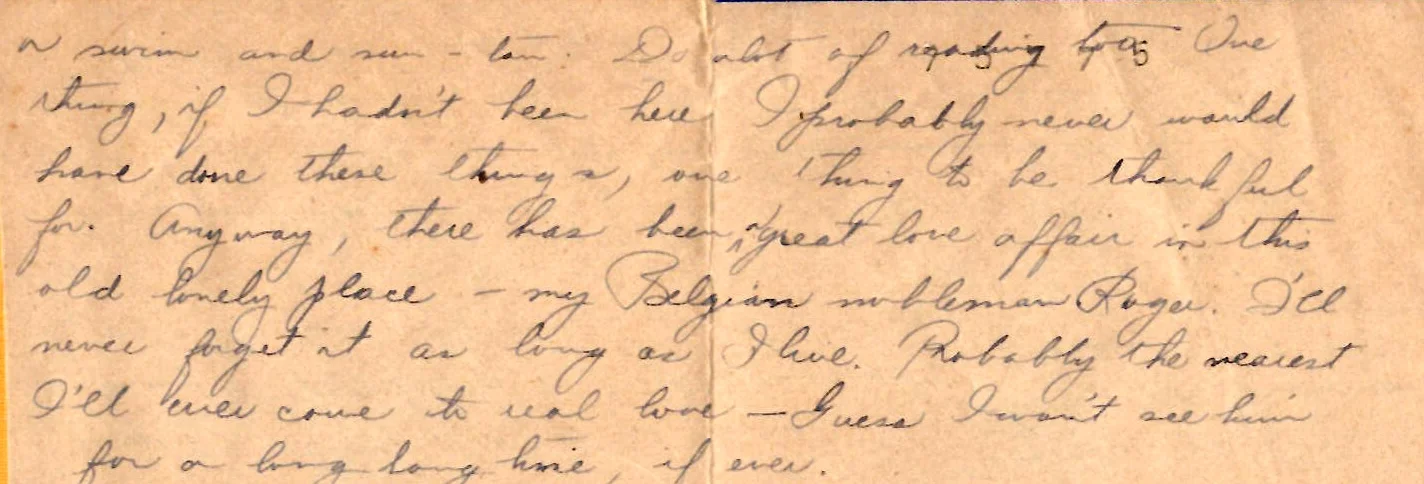 a swim and sun - tan. Do alot of reading too. One
thing, if I hadn't been here I probably never would
have done these things, one thing to be thankful
for. Anyway, there has been a great love affair in this
old lonely place - my Belgian nobleman Roger. I'll
never forget it as long as I live. Probably the nearest
I'll ever come to real love — Guess I won't see him
for a long long time, if ever.